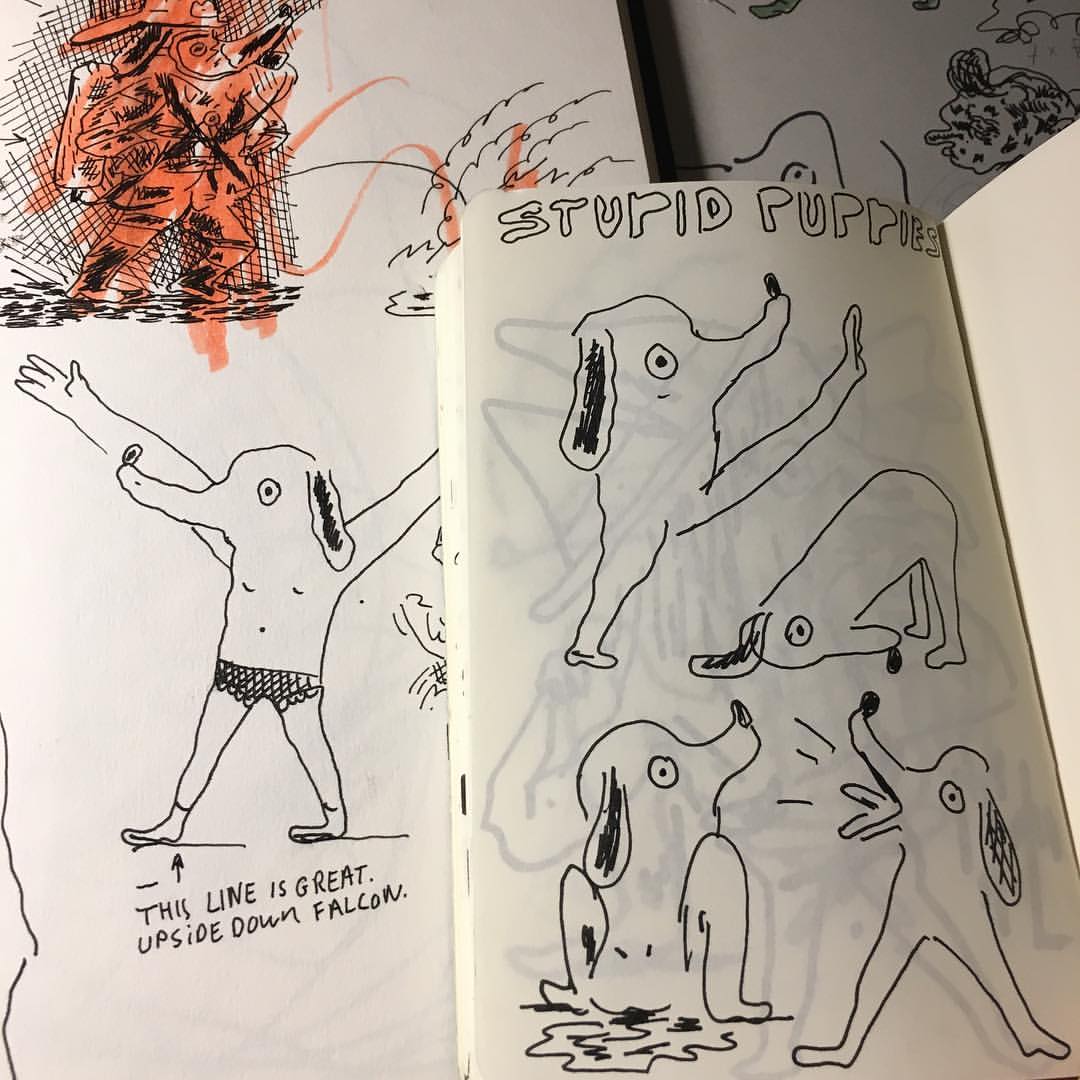 STUPID PUPPIES
THIS LINE IS GREAT.
UPSIDE DOWN FALCON.